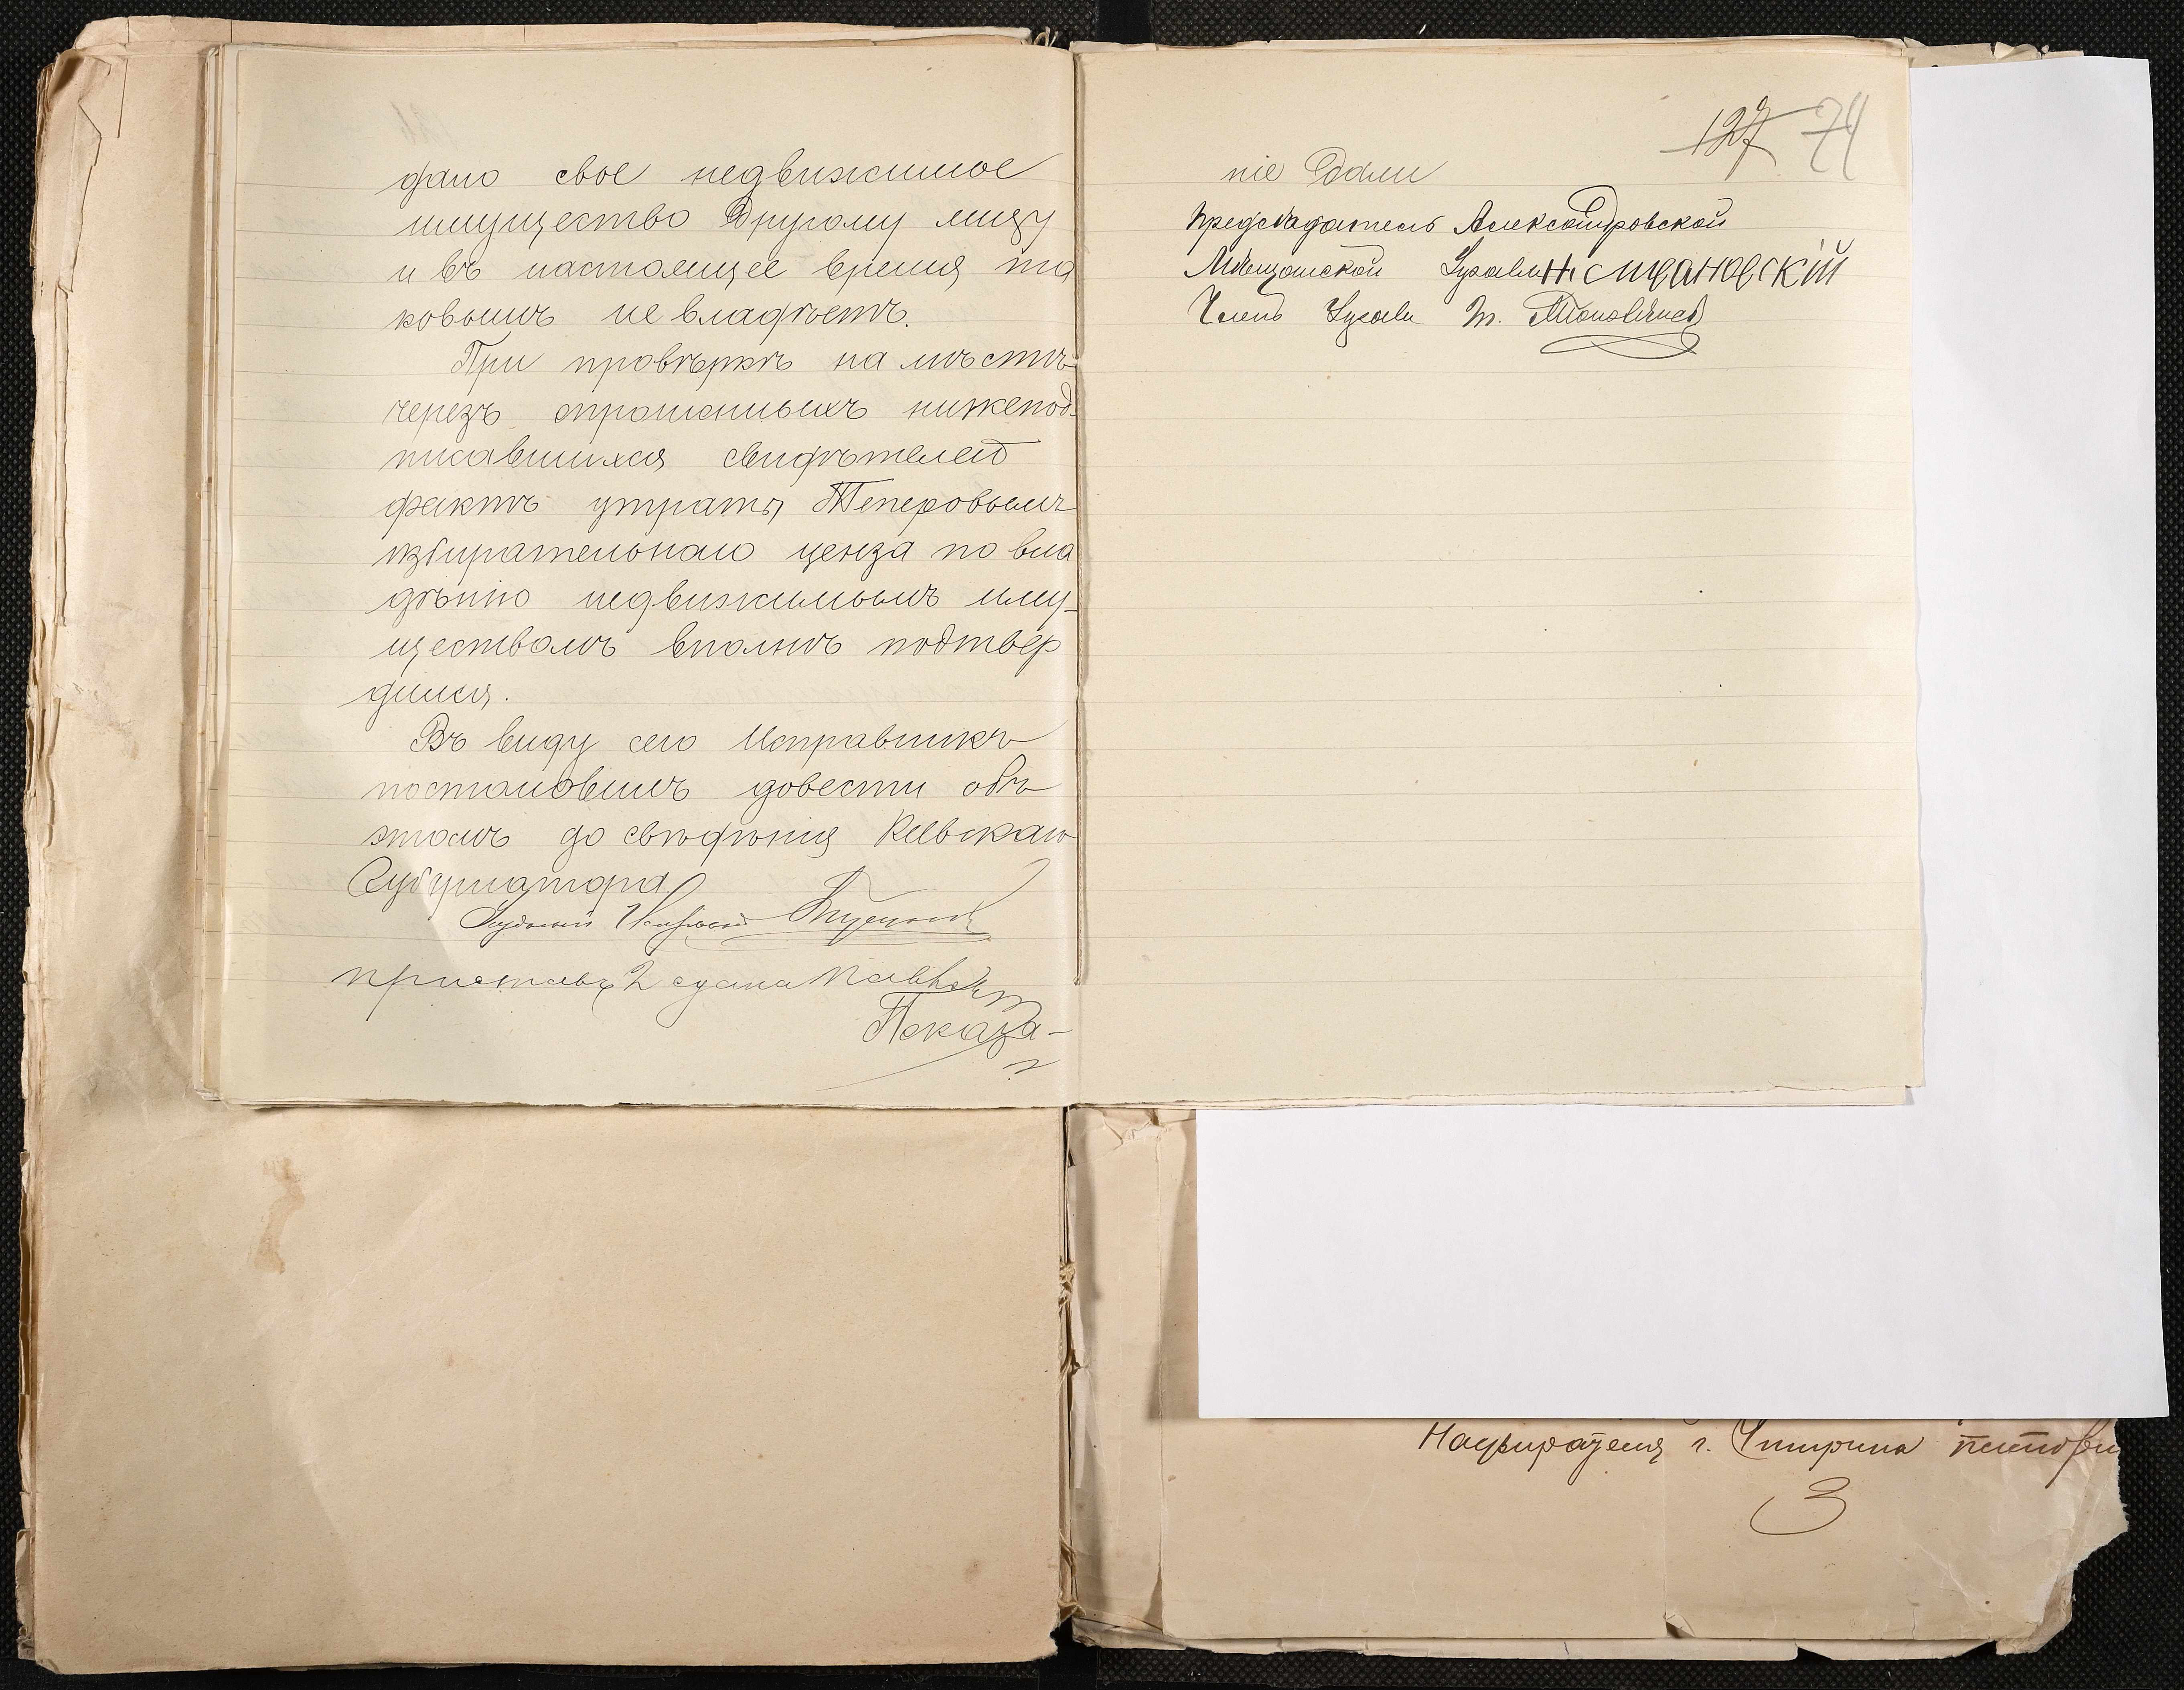 дано свое недвижимое
имущество другому лицу
и въ настоящее время та
ковымъ не владѣетъ.
При провѣркѣ на мѣстѣ
черезъ опрошенныхъ нижепод-
писавшихся свидѣтелей
фактъ утраты Теперовымъ
избирательнаго ценза по вла
дѣнію недвижимымъ иму-
ществомъ вполнѣ подтвер
дился.
Въ виду сего Исправникъ
постановилъ довести объ
этомъ до свѣдѣнія Кіевскаго
Губернатора
Уѣздный Исправникъ
приставъ 2 стана
Показа-
127 74
ніе дали
Предсѣдатель Александровской
Мѣщанской Управы
Членъ Управы Т.
Надзирателя г.
3